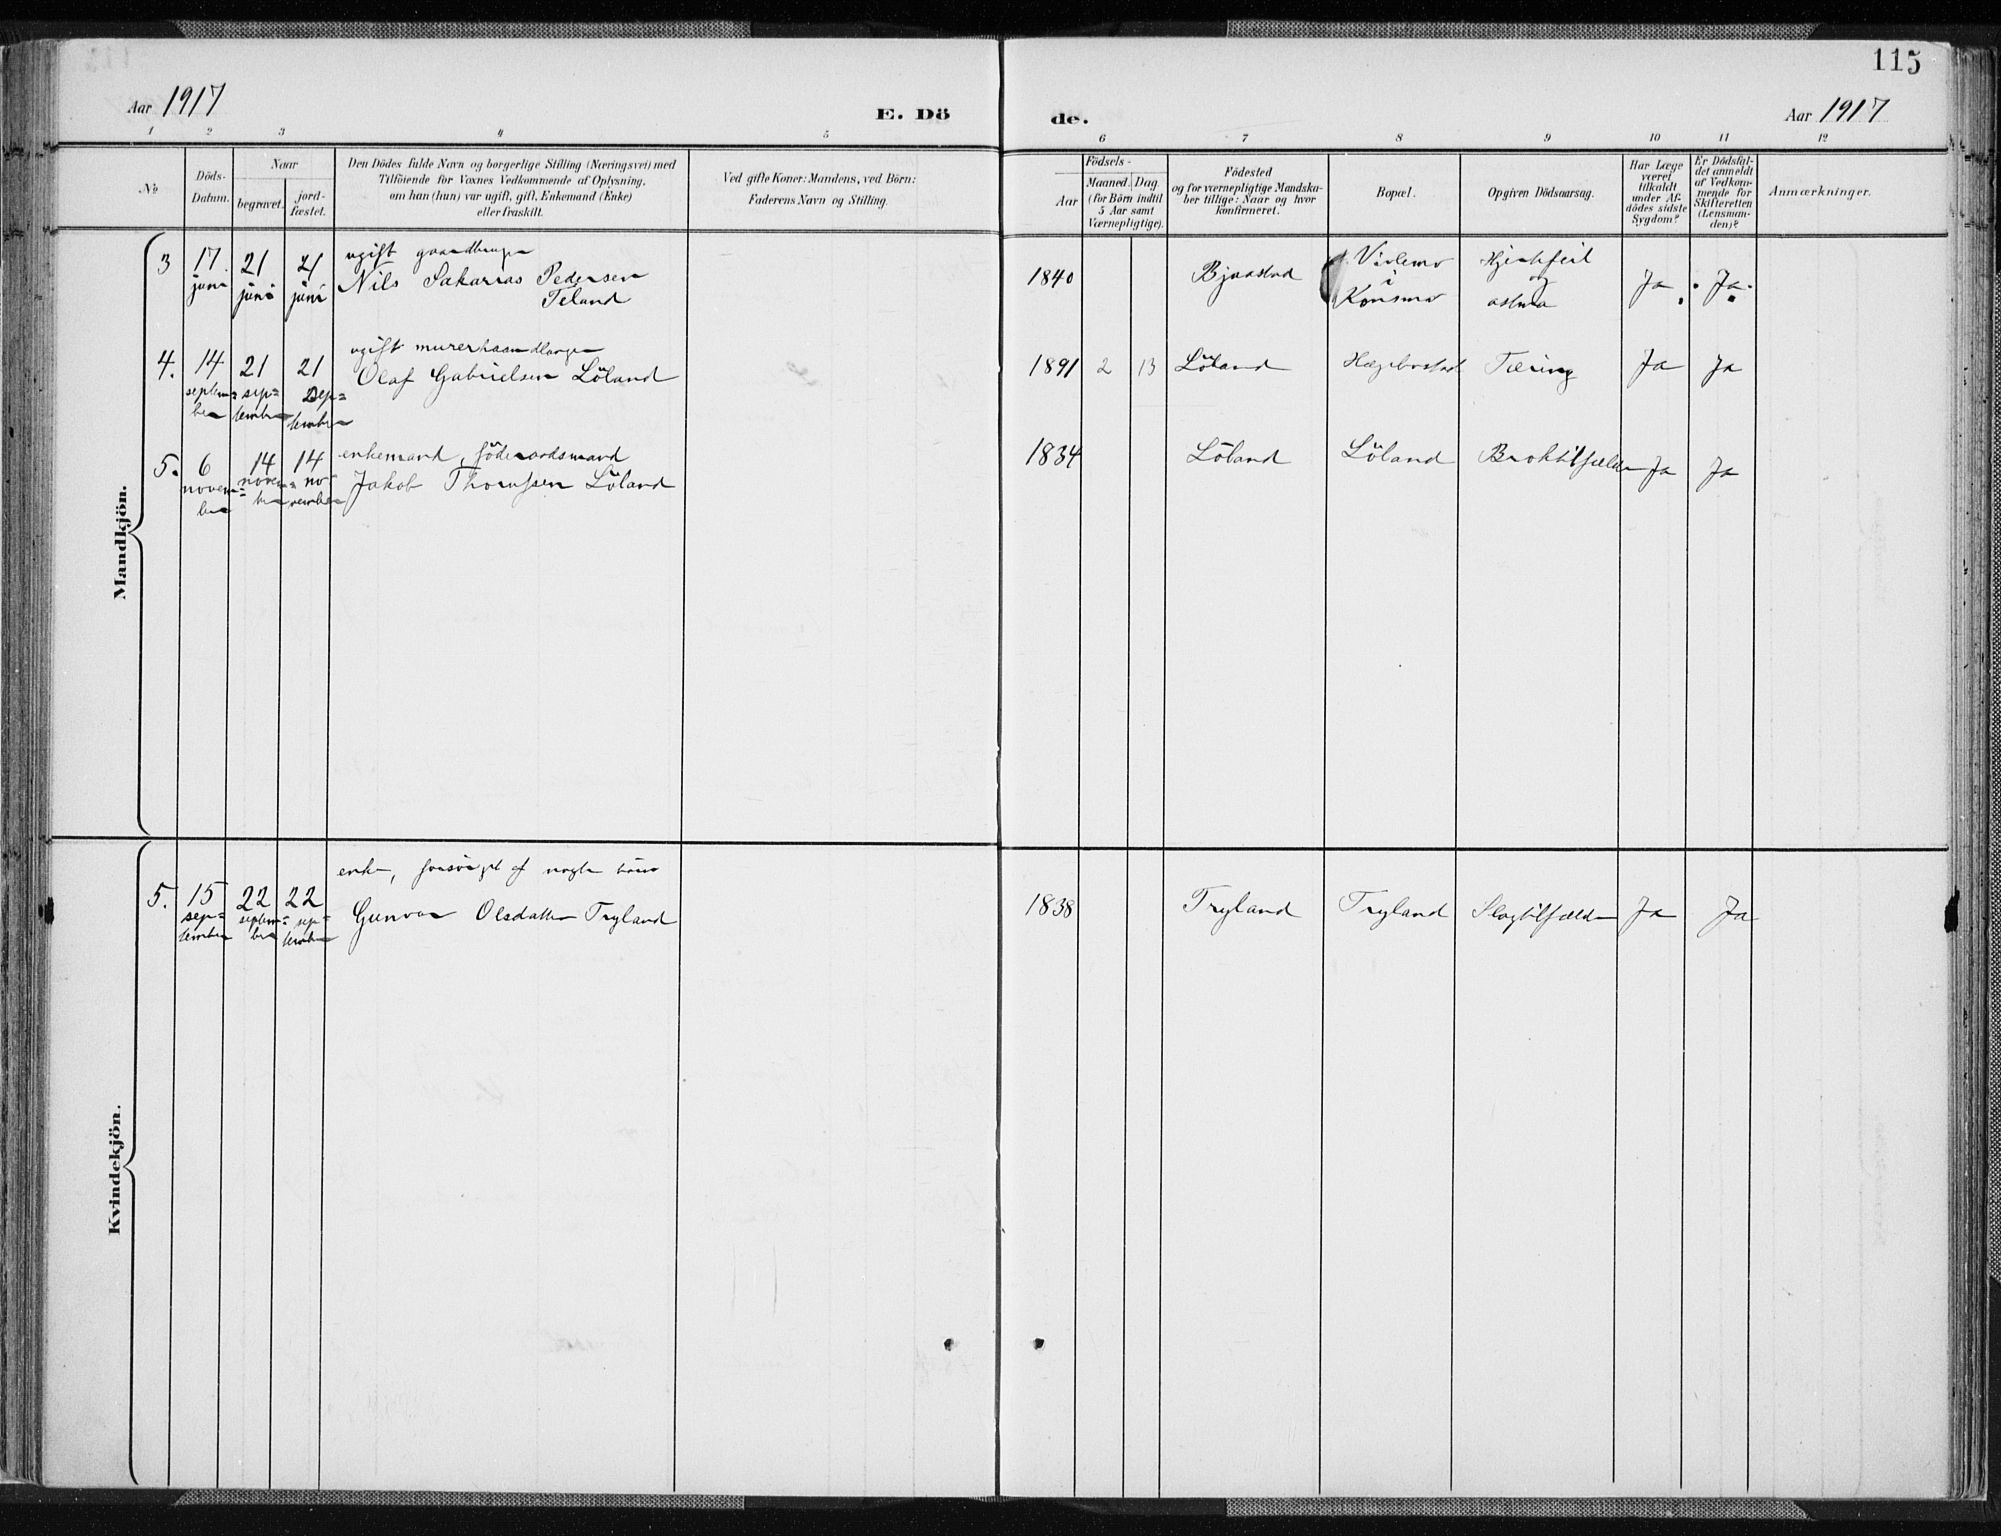 115
Aar 1917
E. Dö
de.
Aar 1917
1 2 3 4 5 6 7 8 9 10 11 12
No
Döds-
Datum.
Naar
begravet.
jord-
fæstet.
Den Dödes fulde Navn og borgerlige Stilling (Næringsvei) med
Tilföiende for Voxnes Vedkommende af Oplysning,
om han (hun) var ugift, gift, Enkemand (Enke)
eller fraskilt.
Ved gifte Koner: Mandens, ved Börn:
Faderens Navn og Stilling.
Födsels-
Aar
Maaned.
Dag.
(for Börn indtil
5 Aar samt
Værnepligtige).
Födested
og for værnepligtige Mandska-
ber tillige: Naar og hvor
konfirmeret.
Bopæl.
Opgiven Dödsaarsag.
Har Læge
været
tilkaldt
under Af-
dödes sidste
Sygdom?
Er Dödsfal-
det anmeldt
af Vedkom-
mende for
Skifteretten
(Lensman-
den)?
Anmærkninger.
Mandkjön.
3
17
juni
21
juni
21
juni
ugift gaardbruger
Nils Sakarias Pedersen
Teland
1840
Bjaastad
i
Konsmo
Hjertefeil
og
astma
Ja
Ja
4.
14
septem=
ber
21
sep=
tember
21
sep=
tember
ugift murerhaandlanger
Olaf Gabrielsen Löland
1891 2 13
Löland
Hægebostad
Tæring
Ja
Ja
5.
6
novem=
ber
14
novem=
ber
14
no=
vember
enkemand, föderaadsmand
Jakob Thomssen Löland
1834
Löland
Löland
Broktilfælde
Ja
Ja
Kvindekjön.
5.
15
sep=
tember
22
septem=
ber
22
sep=
tember
enke, forsörget af
Gunvor Olsdatter Tryland
1838
Tryland
Tryland
Slagtilfælde
Ja
Ja